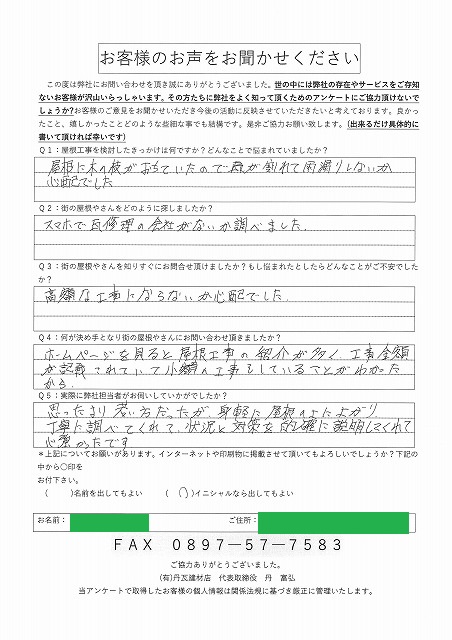 お客様のお声をお聞かせください
この度は弊社にお問い合わせを頂き誠にありがとうございました。世の中には弊社の存在やサービスをご存知
ないお客様が沢山いらっしゃいます。その方たちに弊社をよく知って頂くためのアンケートにご協力頂けないで
しょうか?お客様のご意見をお聞かせいただき今後の活動に反映させていただきたいと考えております。良かっ
たこと、嬉しかったことどのような些細な事でも結構です。是非ご協力お願い致します。(出来るだけ具体的に
書いて頂ければ幸いです)
Q1:屋根工事を検討したきっかけは何ですか?どんなことで悩まれていましたか?
屋根に木の枝がおちていたので瓦が割れて雨漏りしないか
心配でした
Q2:街の屋根やさんをどのように探しましたか?
スマホで瓦修理の会社がないか調べました.
Q3:街の屋根やさんを知りすぐにお問合せ頂けましたか?もし悩まれたとしたらどんなことがご不安でした
か?
高額な工事にならないか心配でした.
Q4:何が決め手となり街の屋根やさんにお問い合わせ頂きましたか?
ホームページを見ると屋根工事の紹介が多く、工事金額
が記載されていて小額の工事もしていることがわかった
から.
Q5:実際に弊社担当者がお伺いしていかがでしたか?
思ったより若い方だったが身軽に屋根の上に上がり
丁寧に調べてくれて、状況と対策を的確に説明してくれて
心強かったです
*上記についてお願いがあります。インターネットや印刷物に掲載させて頂いてもよろしいでしょうか?下記の
中から○印を
お付下さい。
( )名前を出してもよい ( ○ )イニシャルなら出してもよい
お名前: ご住所:
FAX 0897-57-7583
ご協力ありがとうございました。
(有)丹瓦建材店 代表取締役 丹 富弘
当アンケートで取得したお客様の個人情報は関係法規に基づき厳正に管理いたします。